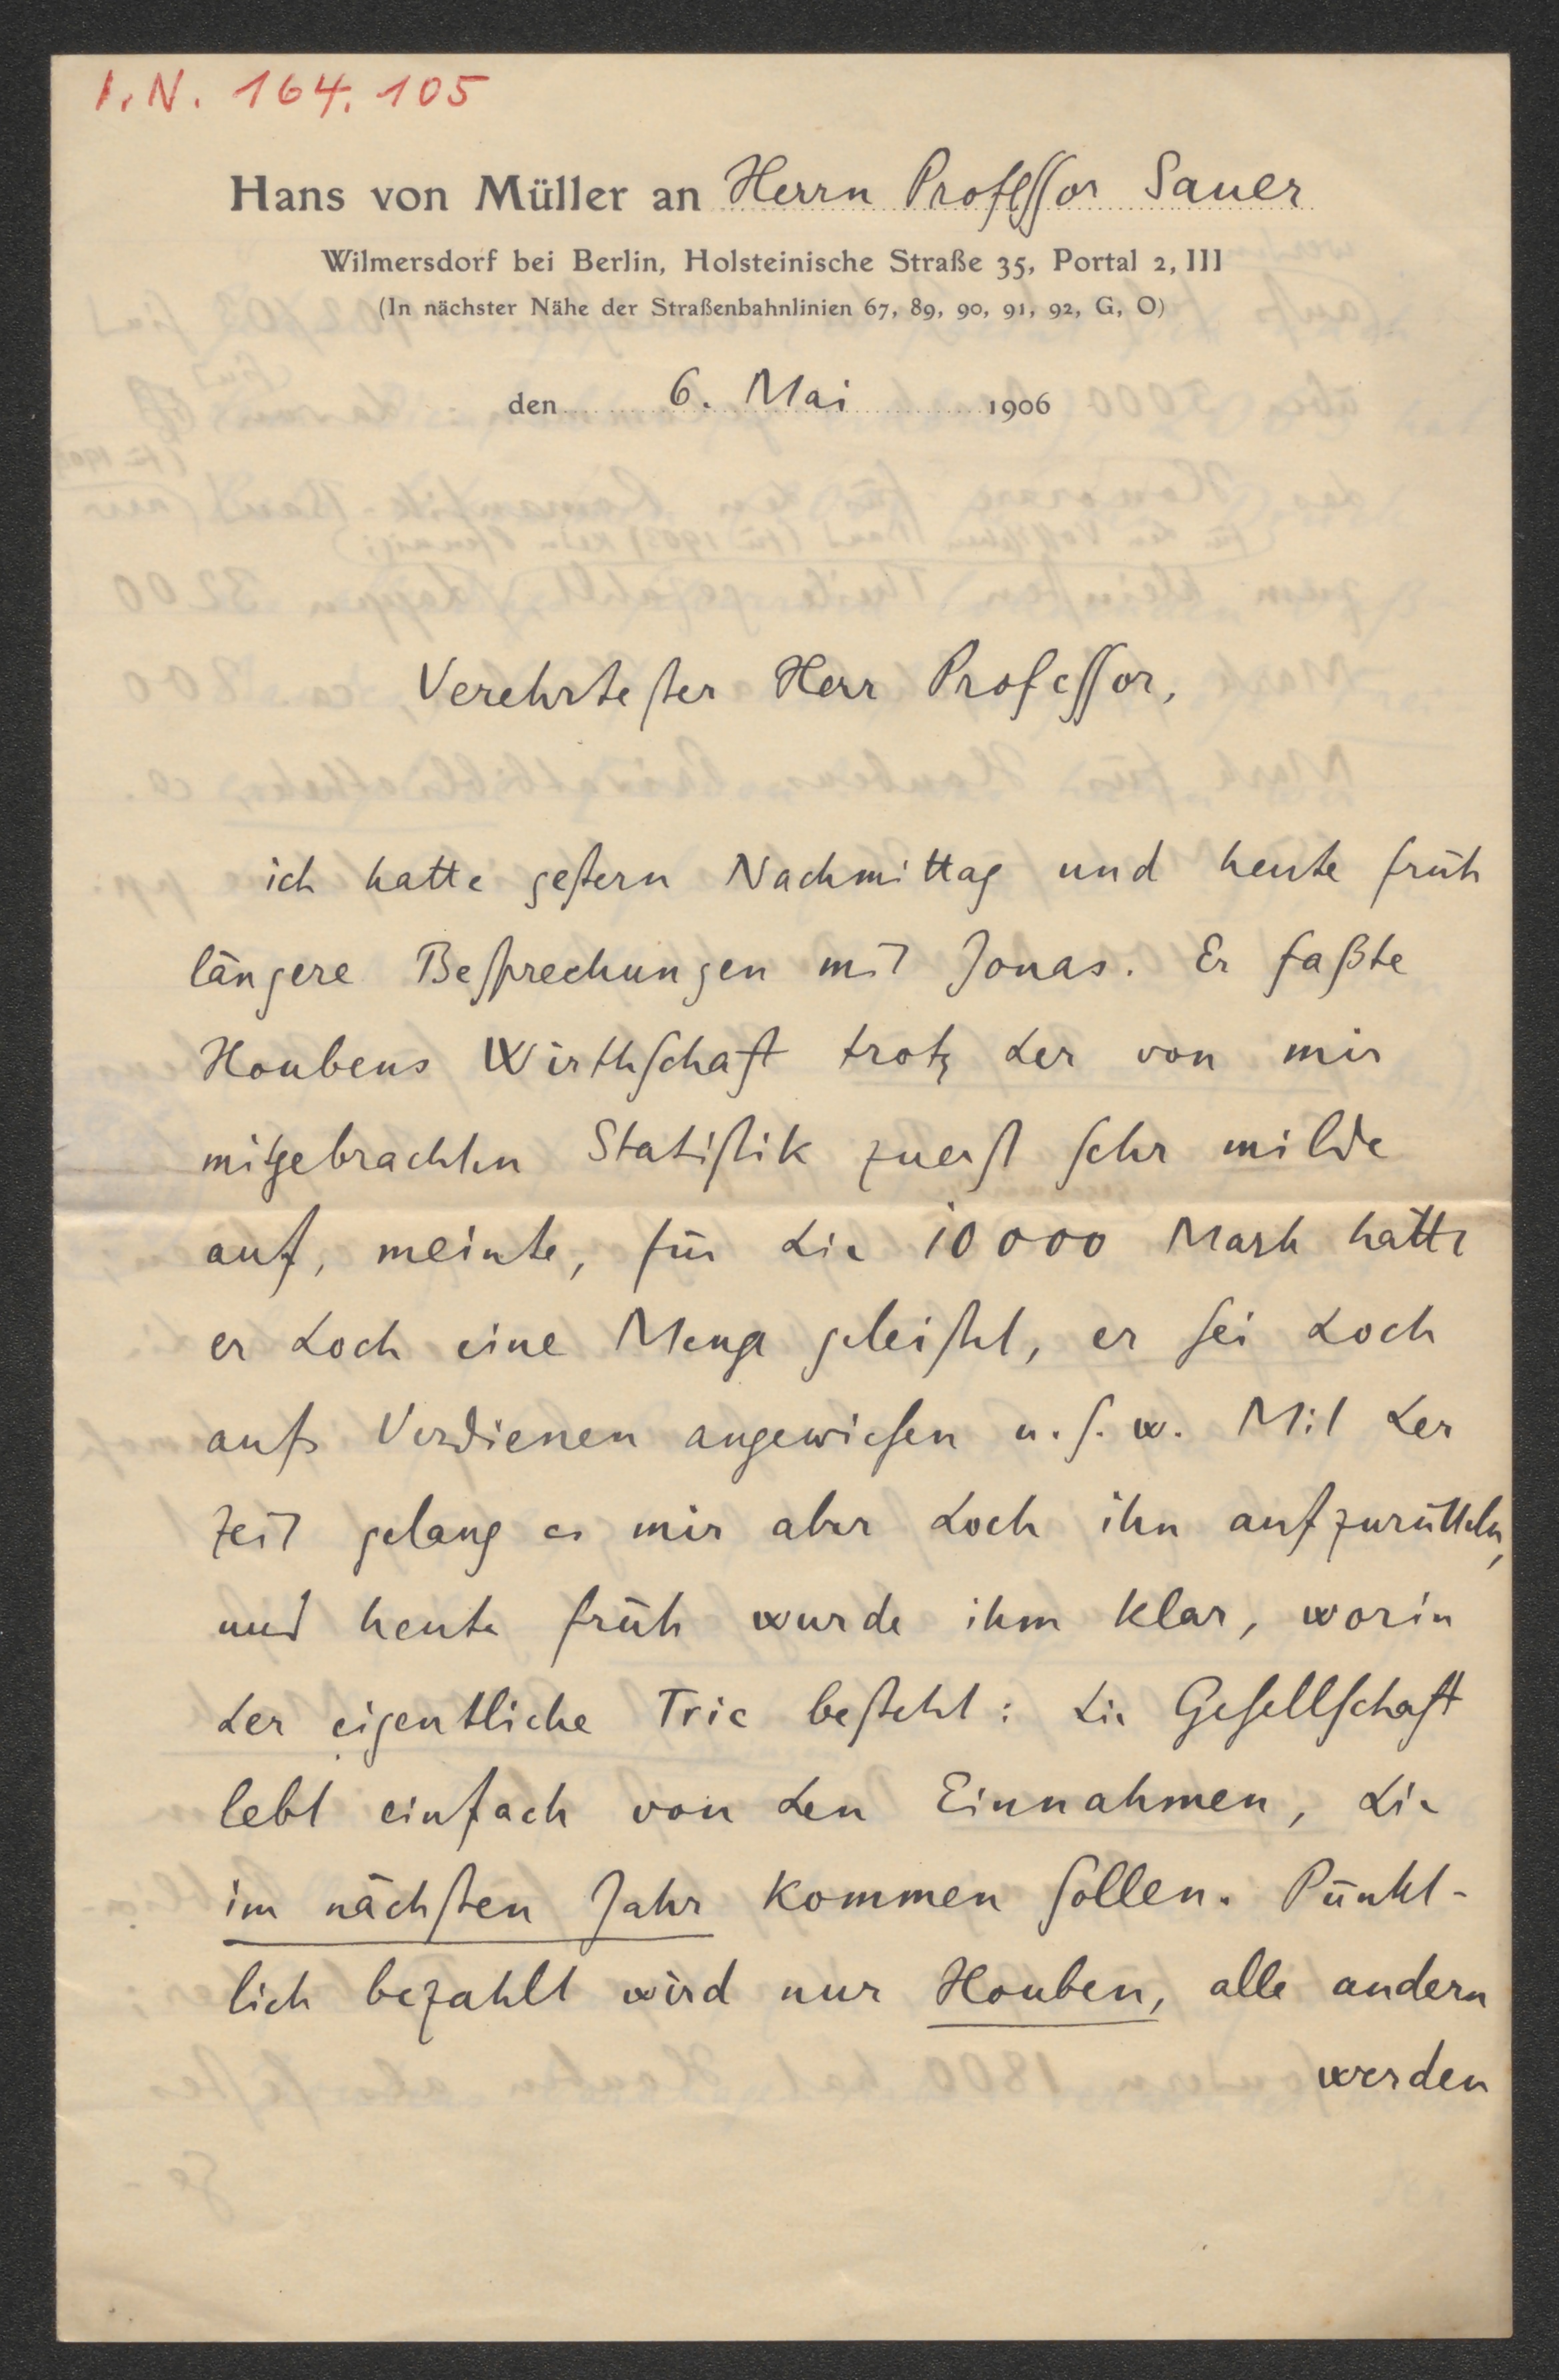 I. N. 164.105
Hans von Müller an Herrn Professor Sauer
Wilmersdorf bei Berlin, Holsteinische Straße 35, Portal 2, III
(In nächster Nähe der Straßenbahnlinien 67, 89, 90, 91, 92, G, O)
den 6. Mai 1906
Verehrtester Herr Professor,
ich hatte gestern Nachmittag und heute früh
längere Besprechungen mit Jonas. Er faßte
Houbens Wirthschaft trotz der von mir
mitgebrachten Statistik zuerst sehr milde
auf, meinte, für die 10000 Mark hätte
er doch eine Menge geleistet, er sei doch
aufs Verdienen angewiesen u. s. w. Mit der
Zeit gelang es mir aber doch ihn aufzurütteln,
und heute früh wurde ihm klar, worin
der eigentliche Tric besteht: die Gesellschaft
lebt einfach von den Einnahmen, die
im nächsten Jahr kommen sollen. Pünkt-
lich bezahlt wird nur Houben, alle andern
werden